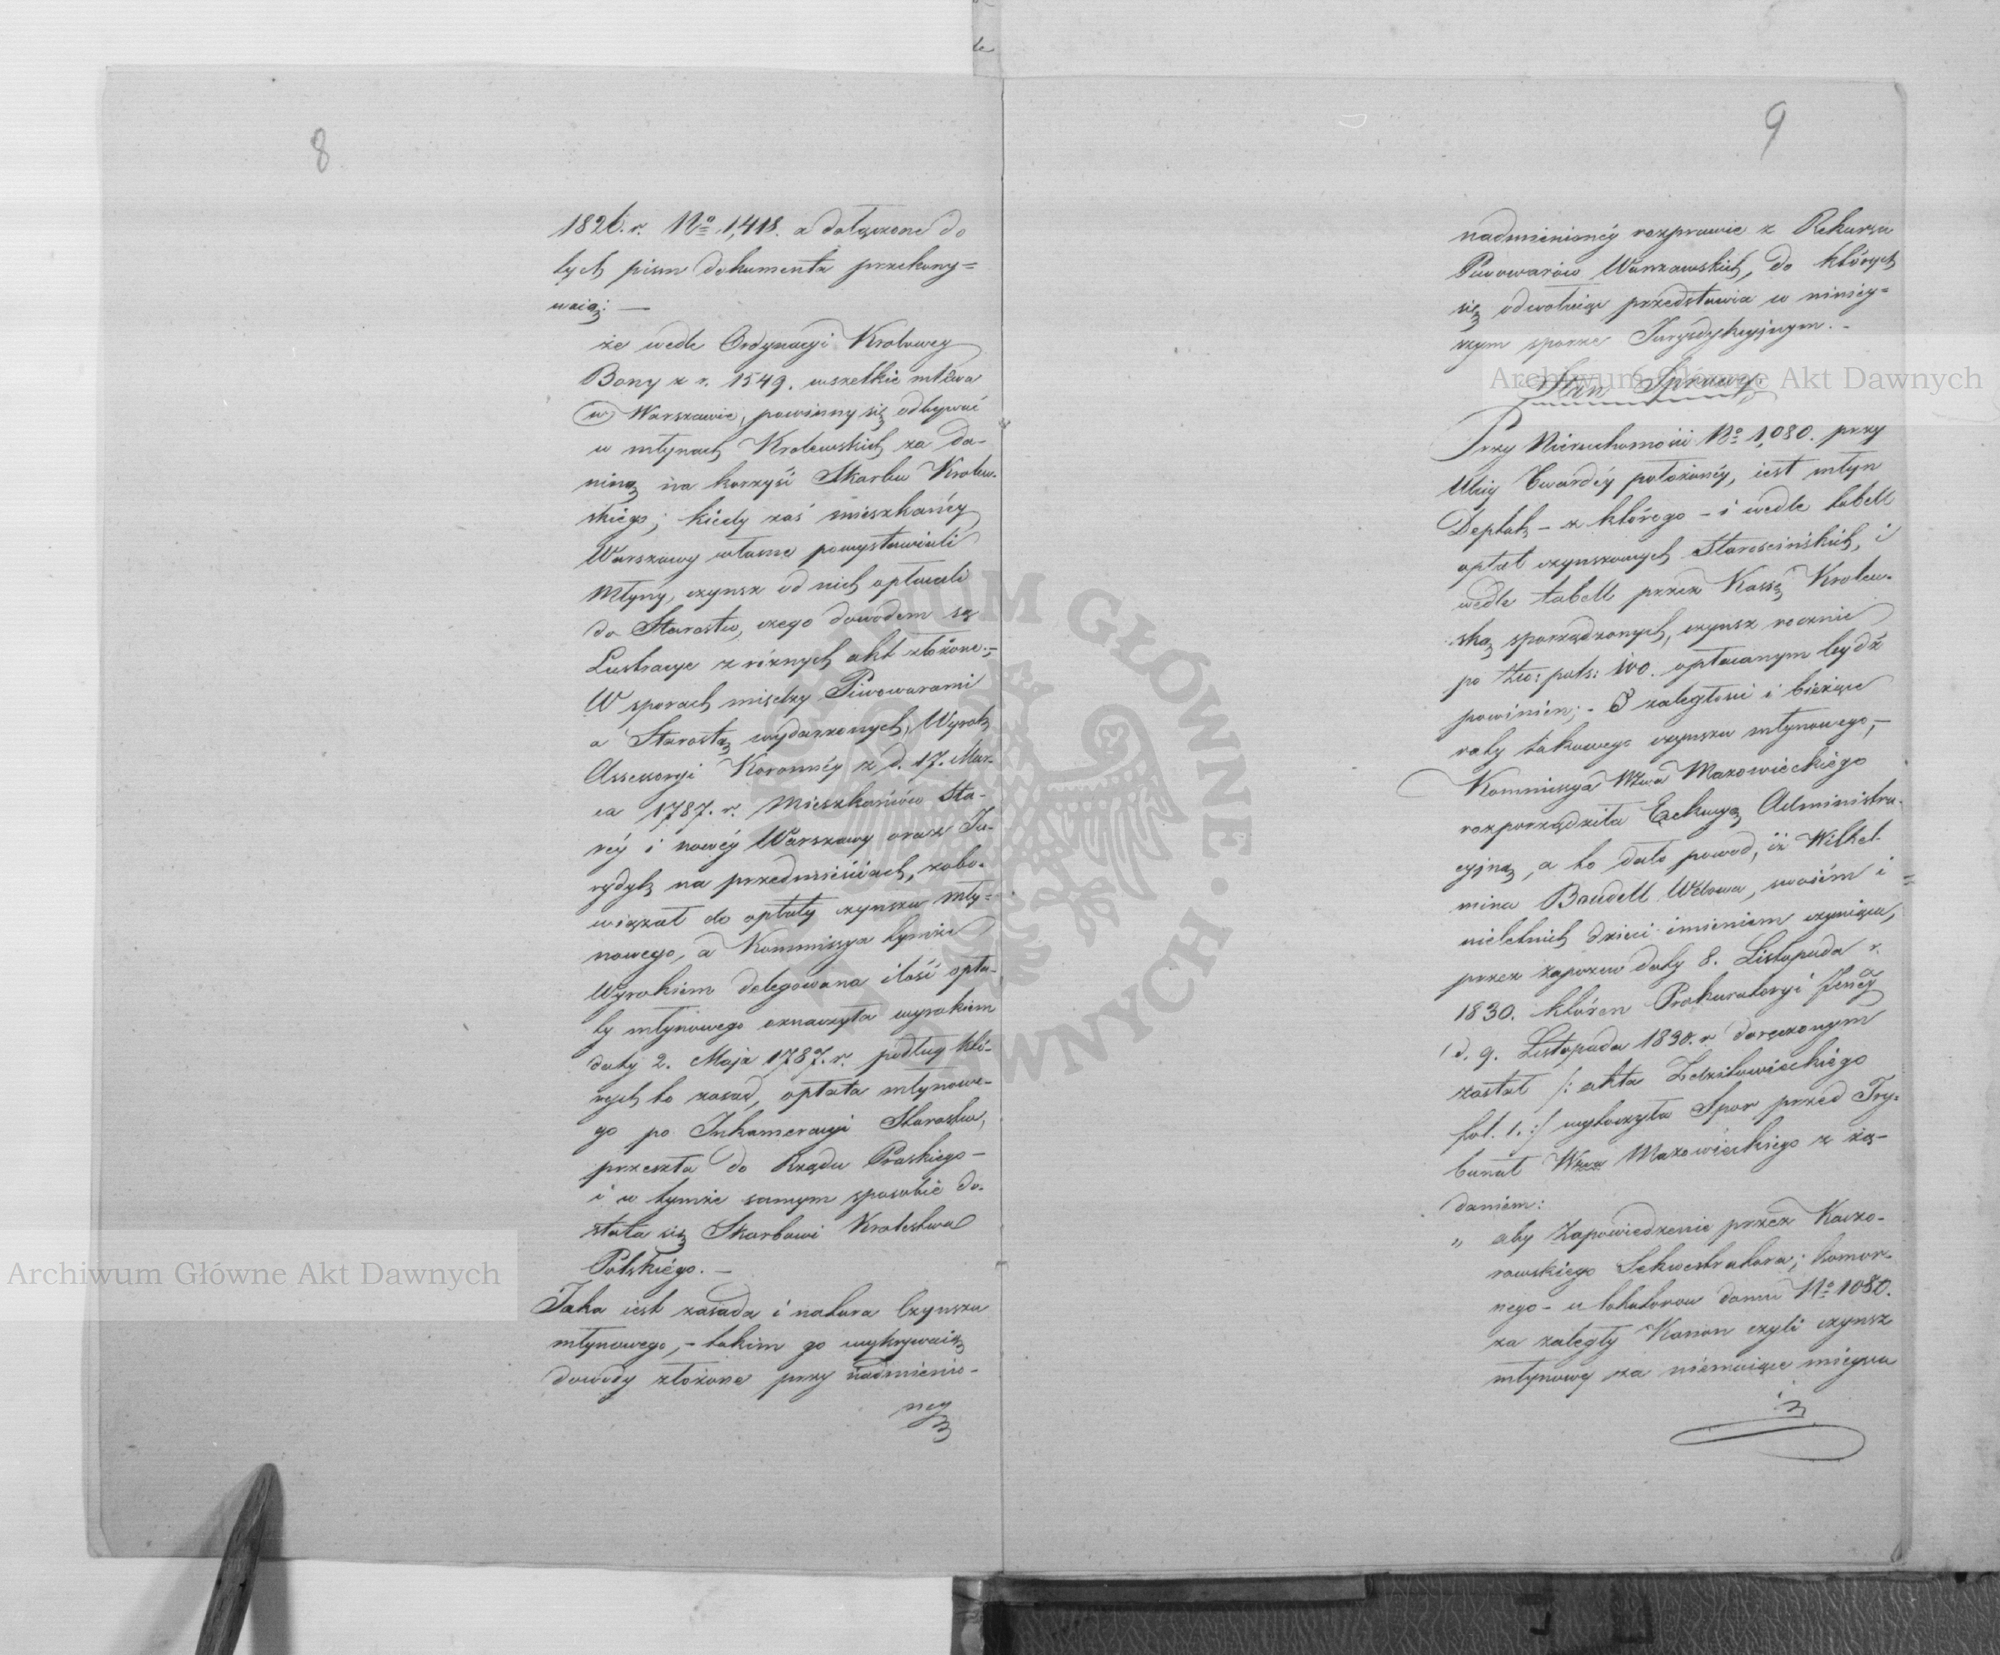 8
1826. r. No 1,418. a dołączone do
tych pism dokumenta przekony=
waią: —
że wedle Ordynacyi Krolowey
Bony z r. 1549. wszelkie mlewa
w Warszawie, powinny się odbywać
w młynach Krolewskich za da-
niną na korzyść Skarbu Krolew-
skiego; kiedy zaś mieszkańcy
Warszawy własne powystawiali
Młyny, czynsz od nich opłacali
do Starostw, czego dowodem są
Lustracye z róznych akt złożone.;-
W sporach między Piwowarami
a Starostą wydarzonych, Wyrok
Assessoryi Koronnéy z d. 17. Mar-
ca 1787. r. Mieszkańców Sta-
réy i nowéy Warszawy oraz Ju-
rydyk na przedmieściach, zobo-
wiązał do opłaty czynszu mły=
nowego, a Kommissya tymże
Wyrokiem delegowana ilość opła-
ty młynowego oznaczyła wyrokiem
daty 2. Maja 1787. r. podług któ-
rych to zasad, opłata młynowe-
go po Inkameracyi Starostw,
przeszła do Rządu Pruskiego —
i w tymże samym sposobie do-
stała się Skarbowi Krolestwa
Polskiégo. —
Jaka iest zasada i natura Czynszu
młynowego, - takim go wykrywaią
dowody złożone przy nadmienio-
ney
9
nadmienionéy rozprawie z Rekursu
Piwowarów Warszawskich, do których
się odwołuiąc przedstawia w ninieÿ=
szym sporze Jurysdykcyjnym. -
Stan Sprawy.
Przy Nieruchomości No 1,080. przy
Ulicy Twardéy położonéy, iest młyn
Deptak - z którego - i wedle tabell
opłat czynszowych Starościńskich, i
wedle tabell przez Kassę Krolew-
ską sporządzonych, czynsz rocznie
po Złо: pols: 100. opłacanym bydź
powinien; - O zaległości i bieżące
raty takowego czynszu młynowego, —
Kommissya Wztwa Mazowieckiégo
rozporządziła Exekucyą Administra-
cyjną, a to dało powod, iż Wilhel-
mina Baudell Wdowa, swoiém i
nieletnich dzieci imieniem czyniąca,
przez zapozew daty 8. Listopada r.
1830. któren Prokuratoryi Jlnéy
d. 9. Listopada 1830. r. doręczonym
został /: akta Zdzitowieckiégo
fol. 1. :/ wytoczyła Spor przed Try-
bunał Wztwa Mazowieckiego z żą-
daniem:
„ aby Zapowiedzenie przez Kaczo-
rowskiego Sekwestratora, komor-
nego - u lokatorow domu No 1080.
za zaległy Kanon czyli czynsz
młynowy za niemaiące mieysca
i
Archiwum Główne Akt Dawnych
Archiwum Główne Akt Dawnych
ARCHIWUM GŁÓWNE AKT DAWNYCH